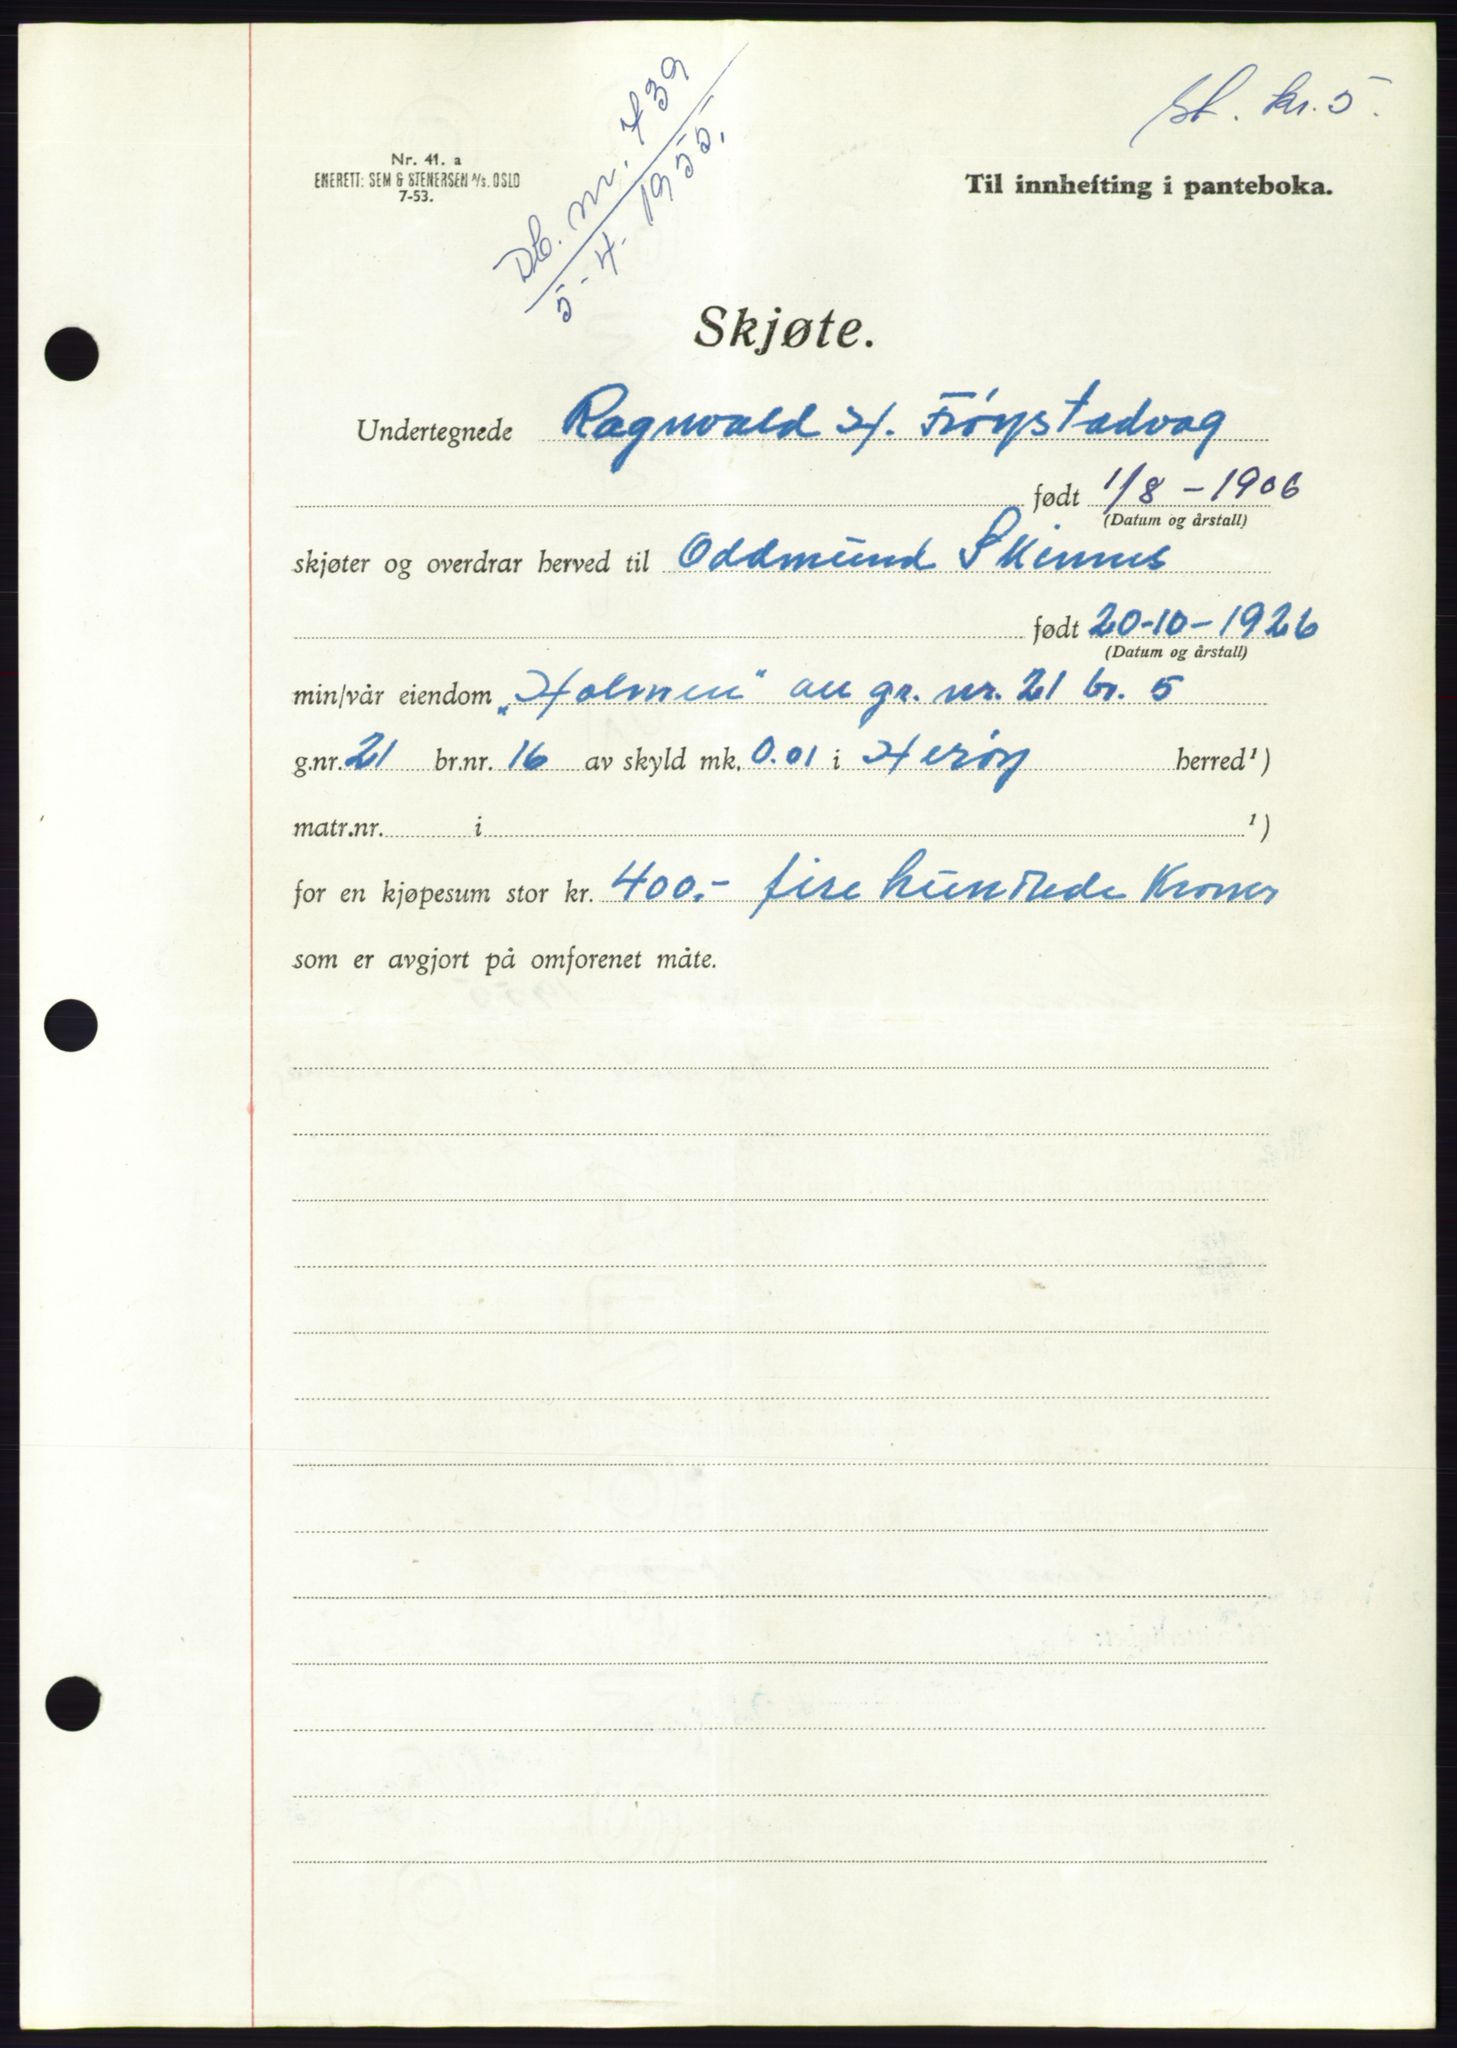 St. kr. 5.
Db. nr. 739
5-4. 1955.
Nr. 41. a
ENERETT: SEM & STENERSEN A/S. OSLO
7-53.
Til innhefting i panteboka.
Skjøte.
Undertegnede Ragnvald H. Frøystadvåg
født 1/8 - 1906
(Datum og årstall)
skjøter og overdrar herved til Oddmund Skinnes
født 20-10-1926
(Datum og årstall)
min/vår eiendom „Holmen" av gr. nr. 21 br. 5
g.nr. 21 br.nr. 16 av skyld mk. 0.01 i Herøy herred¹)
matr.nr. i ¹)
for en kjøpesum stor kr. 400.- fire hundrede Kroner
som er avgjort på omforenet måte.